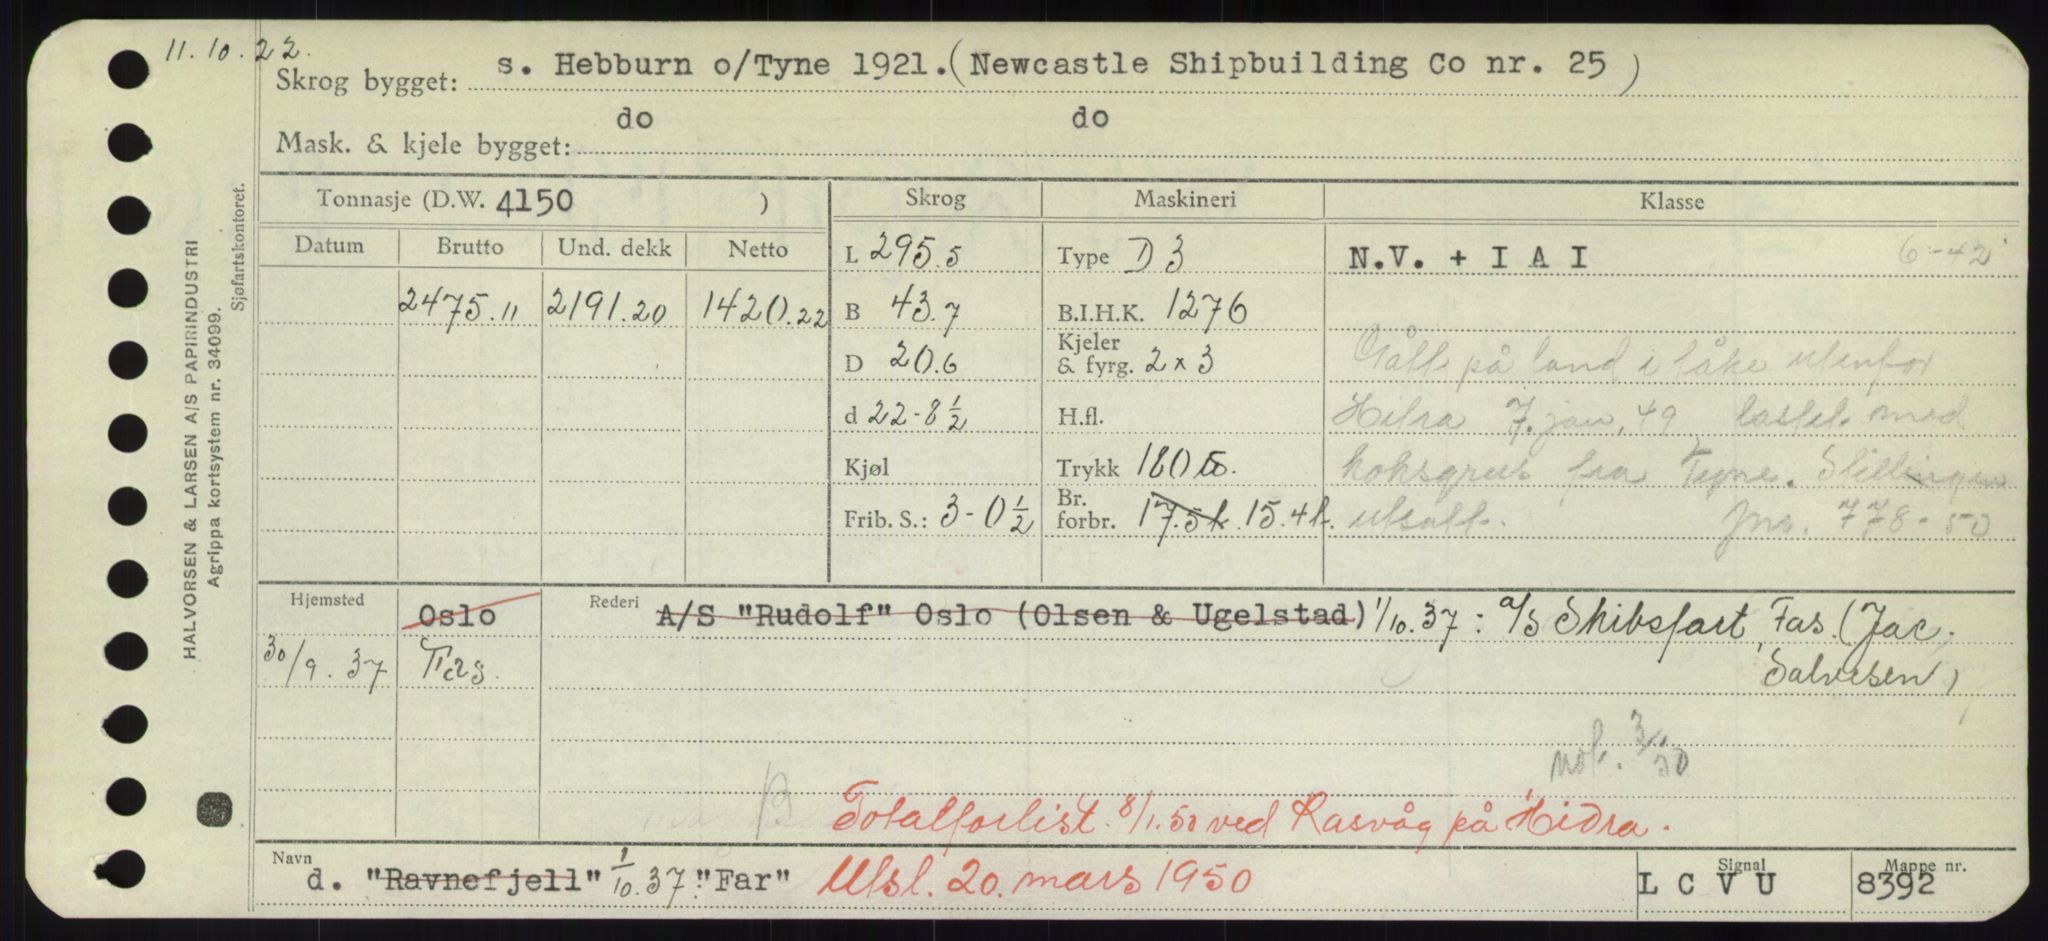 11.10.22.
Skrog bygget: s. Hebburn o/Tyne 1921. (Newcastle Shipbuilding Co nr. 25 )
Mask. & kjele bygget: do do
Tonnasje (D.W. 4150 ) Skrog Maskineri Klasse
Datum Brutto Und. dekk Netto L 295.5 Type D 3 N.V. + I A I 6-42
2475.11 2191.20 1420.22 B 43.7 B.I.H.K. 1276
D 20.6 Kjeler & fyrg. 2 x 3 Gått på land i tåke utenfor
d 22-8 1/2 H.fl. Hitra 7. jan. 49 lastet med
Kjøl Trykk 180 lb. koksgrus fra Tyne. Stillingen
Frib. S.: 3-0 1/2 Br. forbr. 17.5 k. 15.4 k. utsatt. Jnr. 778-50
Hjemsted Oslo Rederi A/S "Rudolf" Oslo (Olsen & Ugelstad) 1/10.37: a/s Skibsfart, Fas. (Jac.
30/9.37 Fas. Salvesen)
not. 3/1 50
B Totalforlist. 8/1.50 ved Rasvåg på Hidra.
Navn d. "Ravnefjell" 1/10.37: "Far" Utsl. 20. mars 1950 Signal L C V U Mappe nr. 8392
HALVORSEN & LARSEN A/S PAPIRINDUSTRI
Agrippa kortsystem nr. 34099.
Sjøfartskontoret.